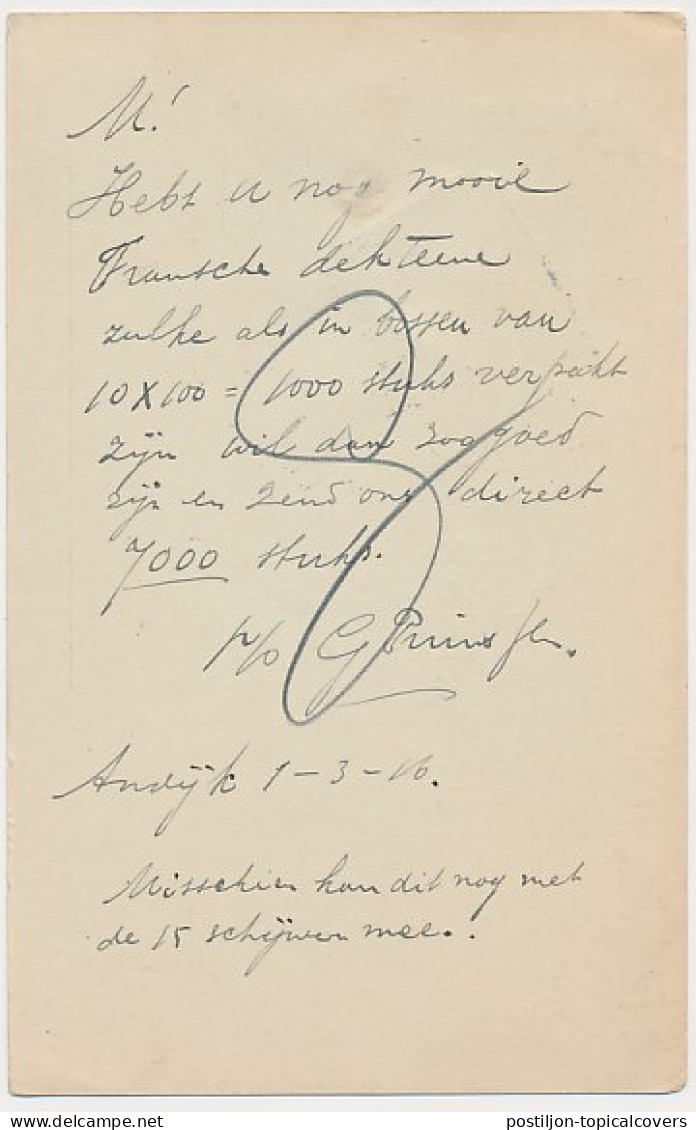 M!
Hebt u nog mooie
Fransche dekteene
zulke als in bossen van
10 x 100 = 1000 stuks verpakt
zijn wil dan zoo goed
zijn en zend ons direct
7000 stuks.
p/o G Prins
Andijk 1-3-16.
Misschien kan dit nog met
de 15 schijven mee..
postiljon-topicalcovers
www.delcampe.net